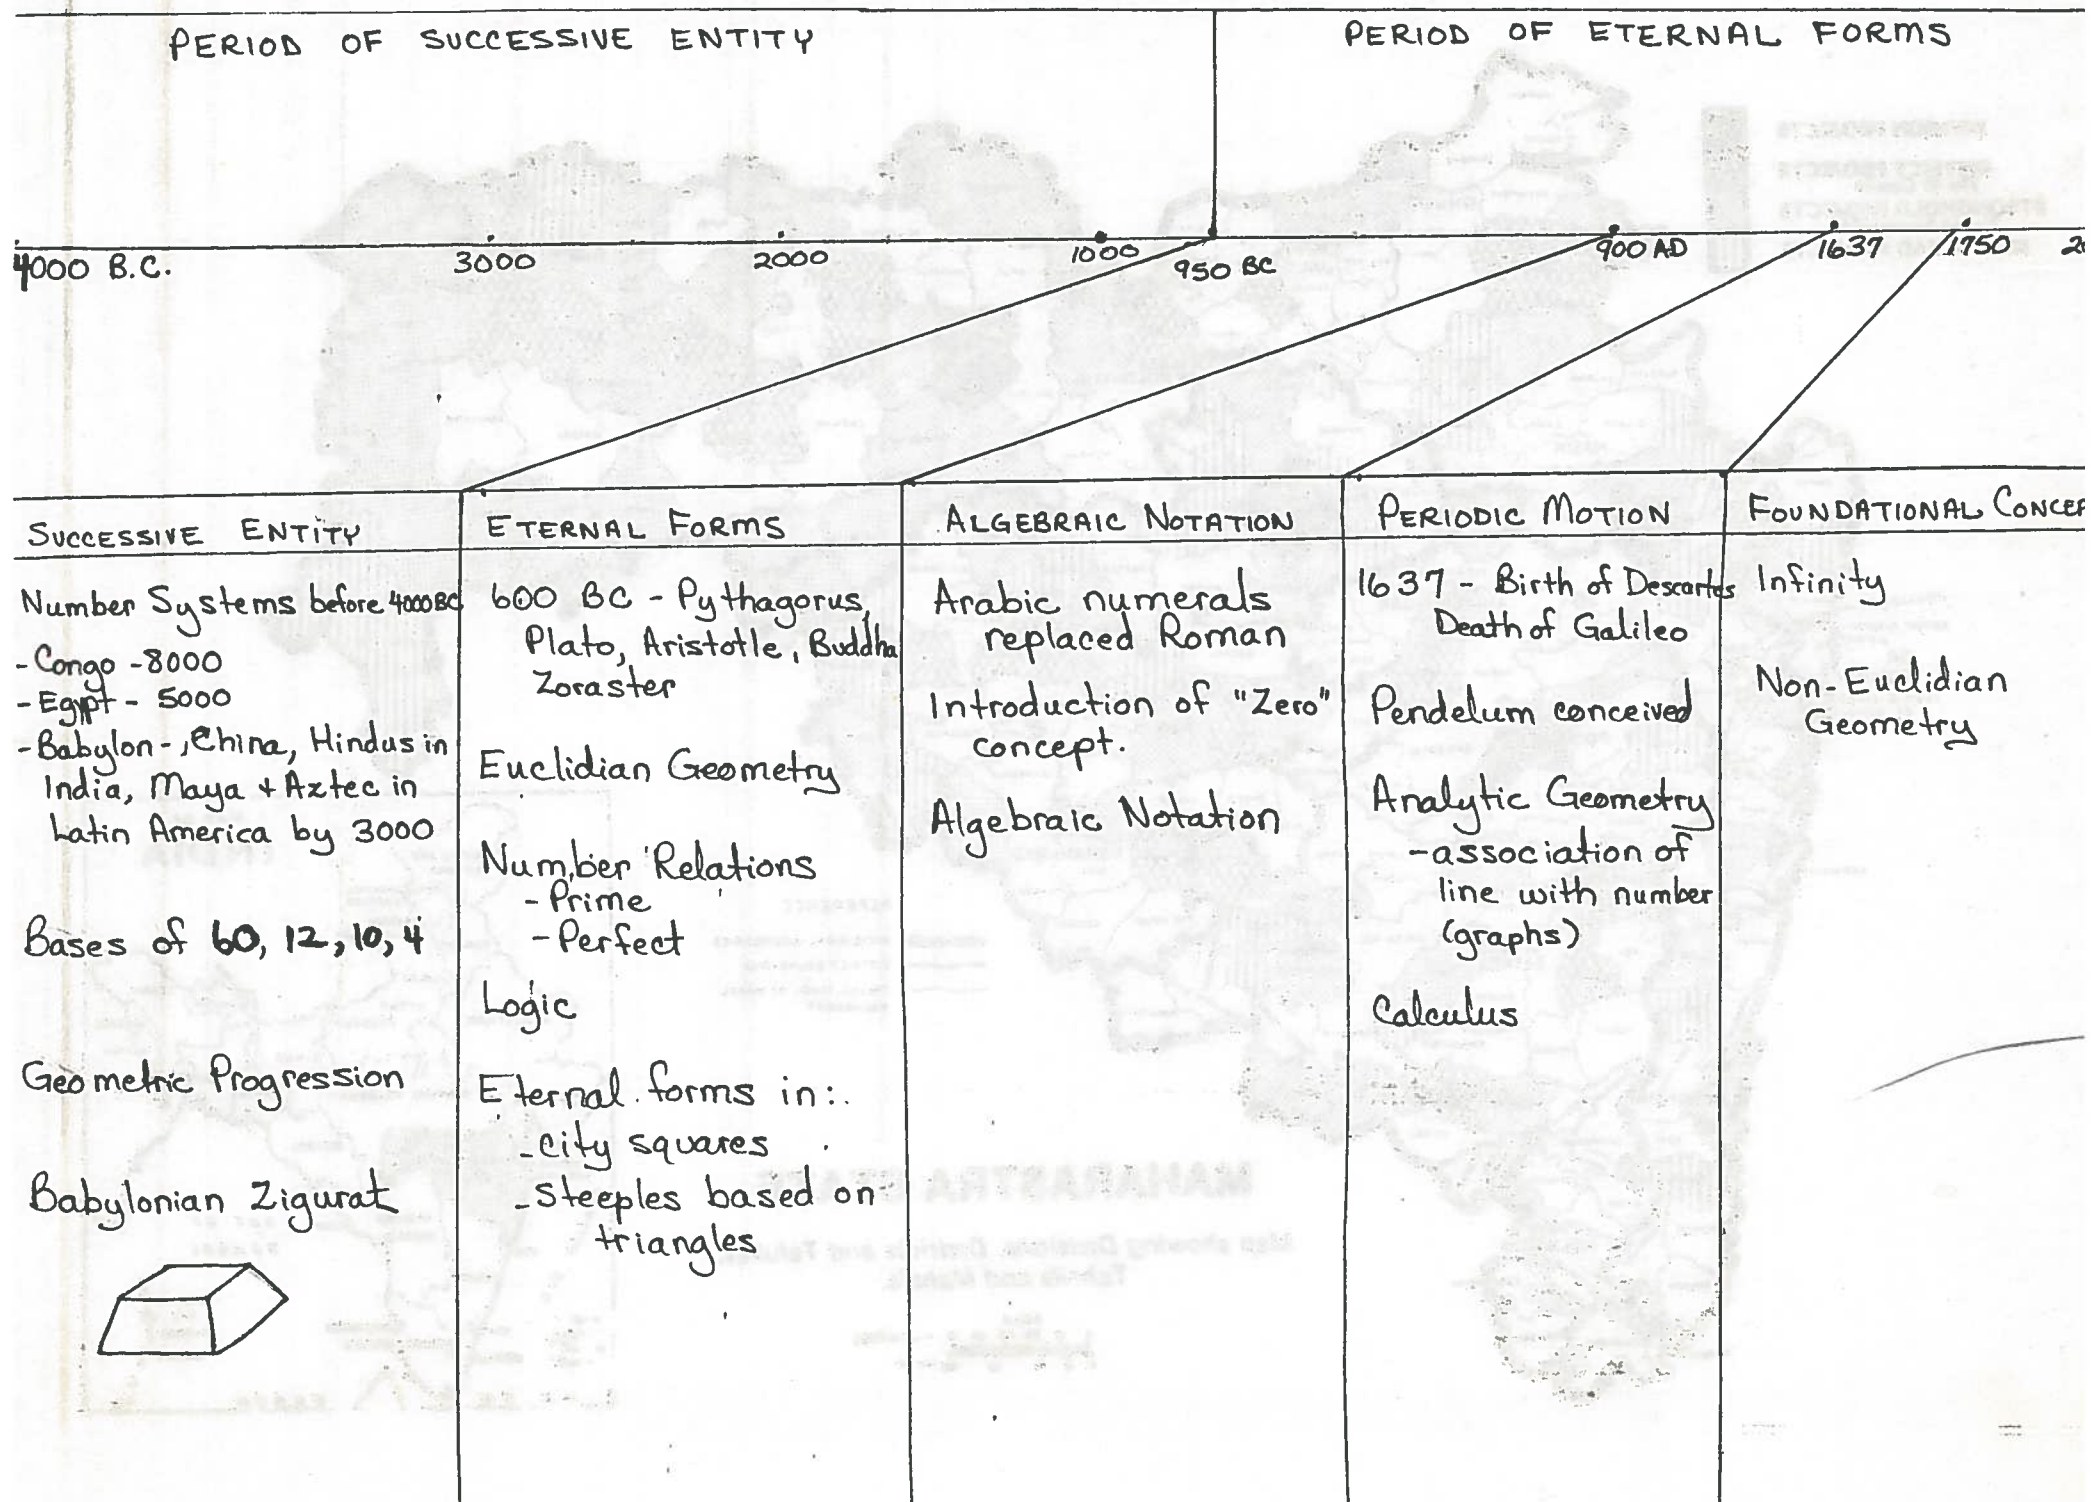 PERIOD OF SUCCESSIVE ENTITY
PERIOD OF ETERNAL FORMS
4000 B.C.
3000
2000
1000
950 BC
900 AD
1637
1750
SUCCESSIVE ENTITY
Number Systems before 4000 BC
- Congo - 8000
- Egypt - 5000
- Babylon - , China, Hindus in
India, Maya + Aztec in
Latin America by 3000
Bases of 60, 12, 10, 4
Geometric Progression
Babylonian Zigurat
ETERNAL FORMS
600 BC - Pythagorus,
Plato, Aristotle, Buddha
Zoraster
Euclidian Geometry
Number Relations
- Prime
- Perfect
Logic
Eternal forms in:
- city squares
- Steeples based on
triangles
ALGEBRAIC NOTATION
Arabic numerals
replaced Roman
Introduction of "Zero"
concept.
Algebraic Notation
PERIODIC MOTION
1637 - Birth of Descartes
Death of Galileo
Pendelum conceived
Analytic Geometry
- association of
line with number
(graphs)
Calculus
FOUNDATIONAL CONCEP
Infinity
Non-Euclidian
Geometry
MAHARASTRA
Map showing Divisions, Districts and Talukas,
INDIA